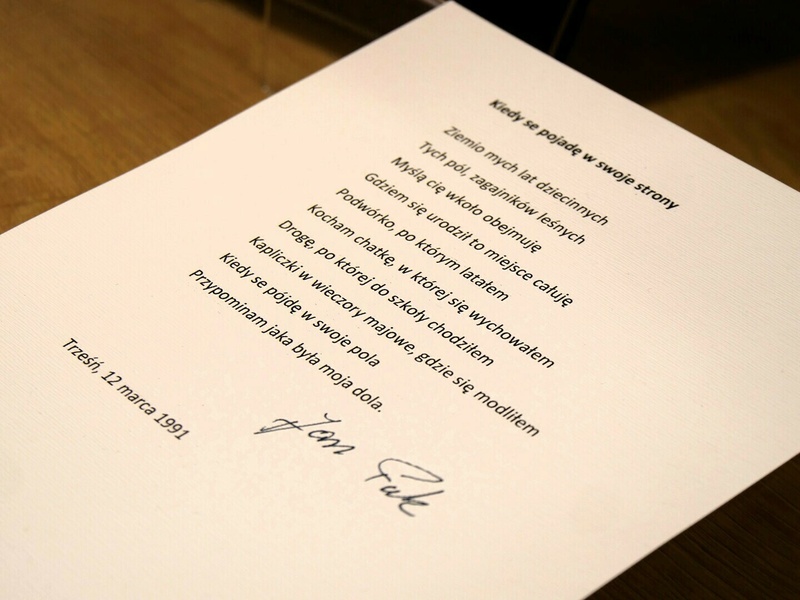 Kiedy se pojadę w swoje strony
Ziemio mych lat dziecinnych
Tych pól, zagajników leśnych
Myślą cię wkoło obejmuję
Gdziem się urodził to miejsce całuję
Podwórko, po którym latałem
Kocham chatkę, w której się wychowałem
Drogę, po której do szkoły chodziłem
Kapliczki w wieczory majowe, gdzie się modliłem
Kiedy se pójdę w swoje pola
Przypominam jaka była moja dola.
Trześń, 12 marca 1991
Jan